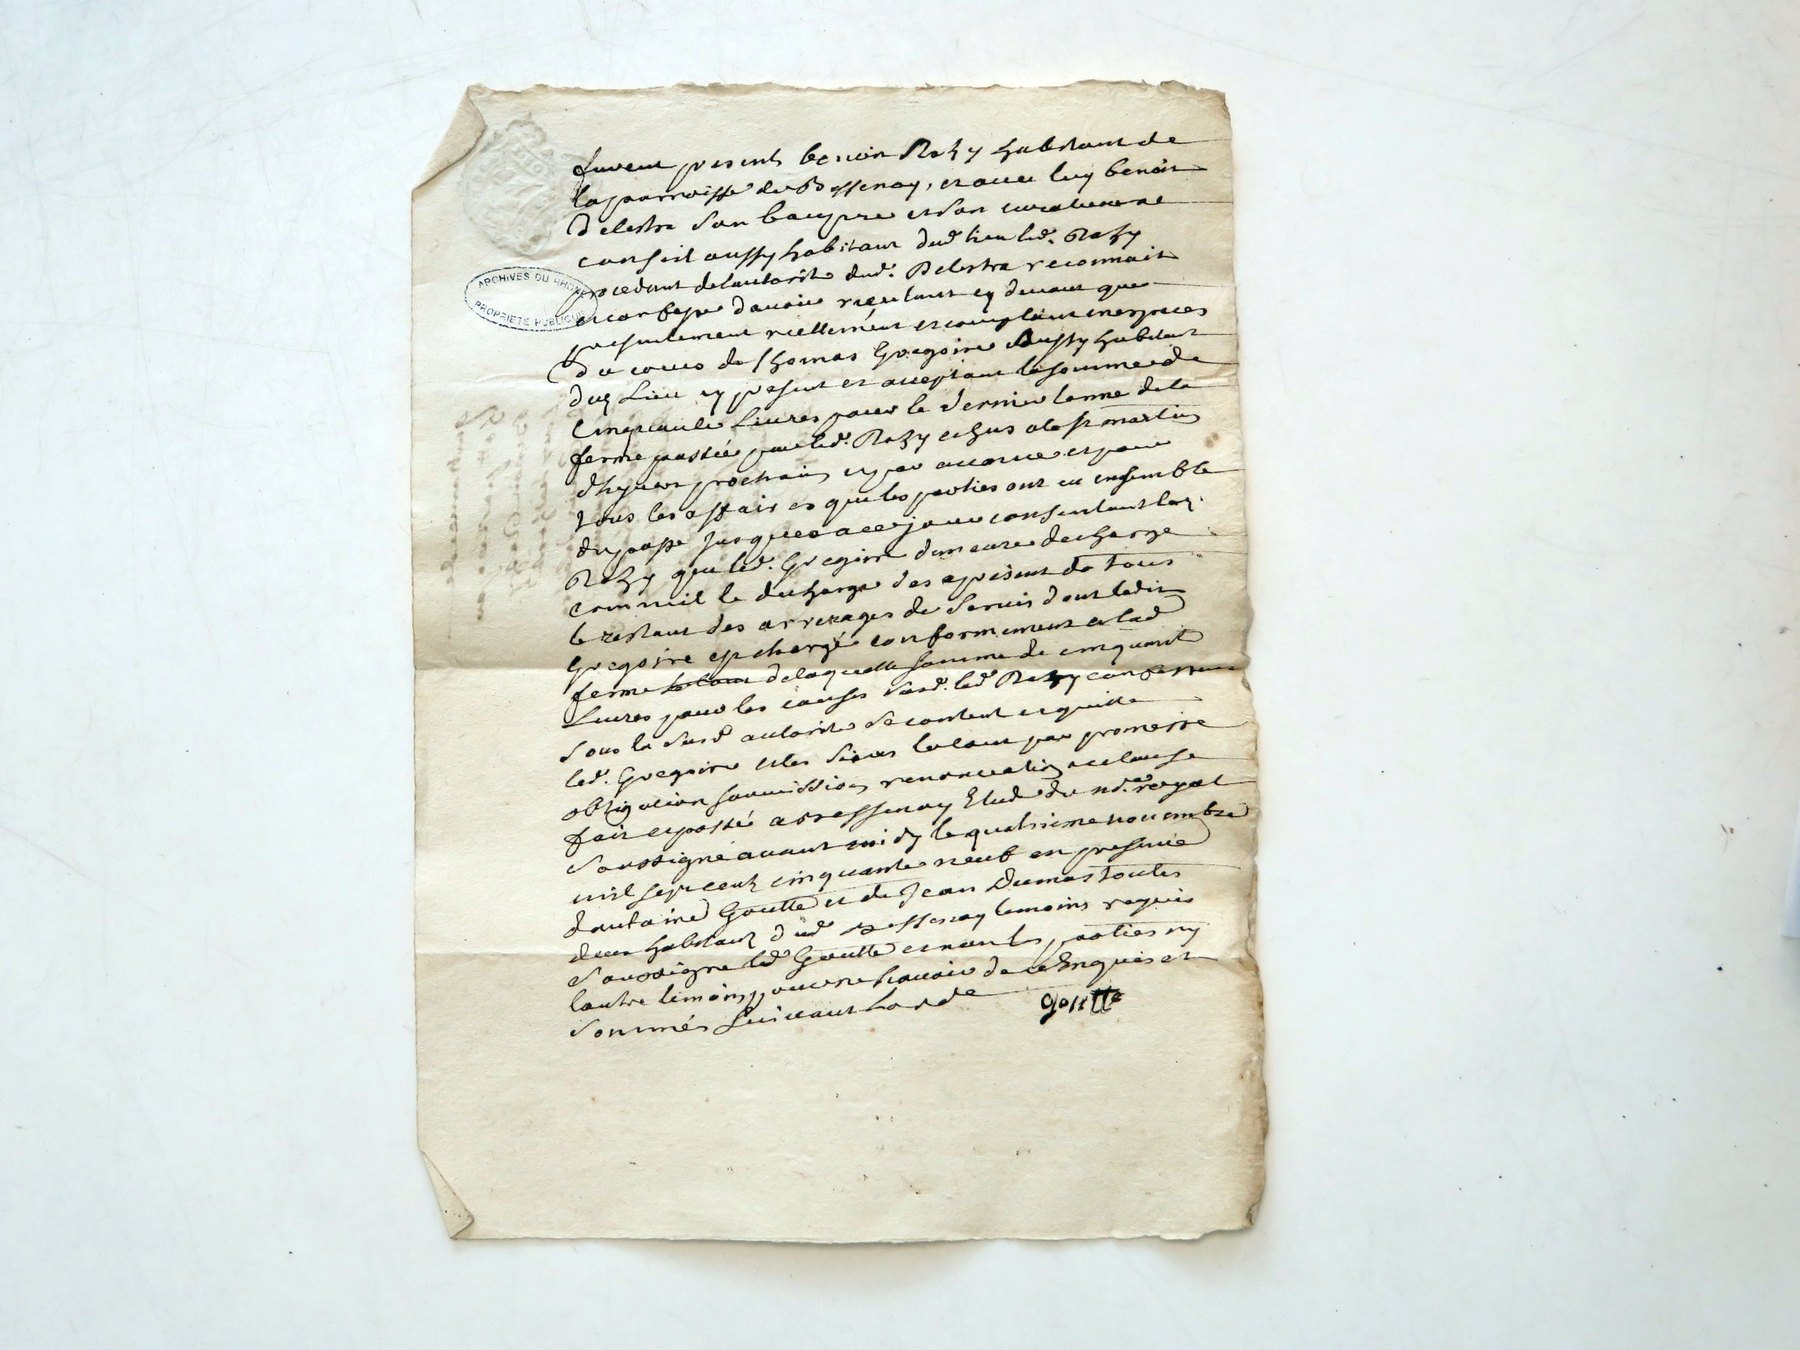 furent presents benoit Razy habitant de
la parroisse de Bessenay, et avec luy benoit
Delestra son beaupere et son curateur
conseil aussy habitant dud. lieu led. Razy
procedant de lautorité dud. Delestra reconnait
et confesse davoir tant cy devant que
presentement reellement et comptant en especes
de cours de thomas Gregoire aussy habitant
dud Lieu cy present et acceptant la somme de
Cinquante Livres pour le dernier terme de la
ferme passée par led. Razy echus a la st martin
dhyver prochain et par avance et pour
tous les affaires que les parties ont eu ensemble
du passe jusques a ce jour consentant led.
Razy que led. Gregoire demeure decharge
comme il le decharge des apresent de tous
le restant des arrerages de servis dont ledit
Gregoire est chargé conformement a lad
ferme de laquelle somme de cinquante
Livres pour les causes susd. led Razy confessant
sous la susd autorité se content et quitte
led. Gregoire et les siens par promesse
obligation soumission renonciation et clause
fait et passé a Bessenay Etude du no.re royal
soussigné avant midy le quatrieme novembre
mil sept cent cinquante neuf en presence
dantoine Goutte et de Jean Dumas toutes
deux habitant dud Bessenay temoins requis
soussigne led Goutte et non les parties ny
lautre temoins pour ne scavoir de ce Enquis et
sommés suivant Lorde
goutte
ARCHIVES DU RHONE
PROPRIETE PUBLIQUE